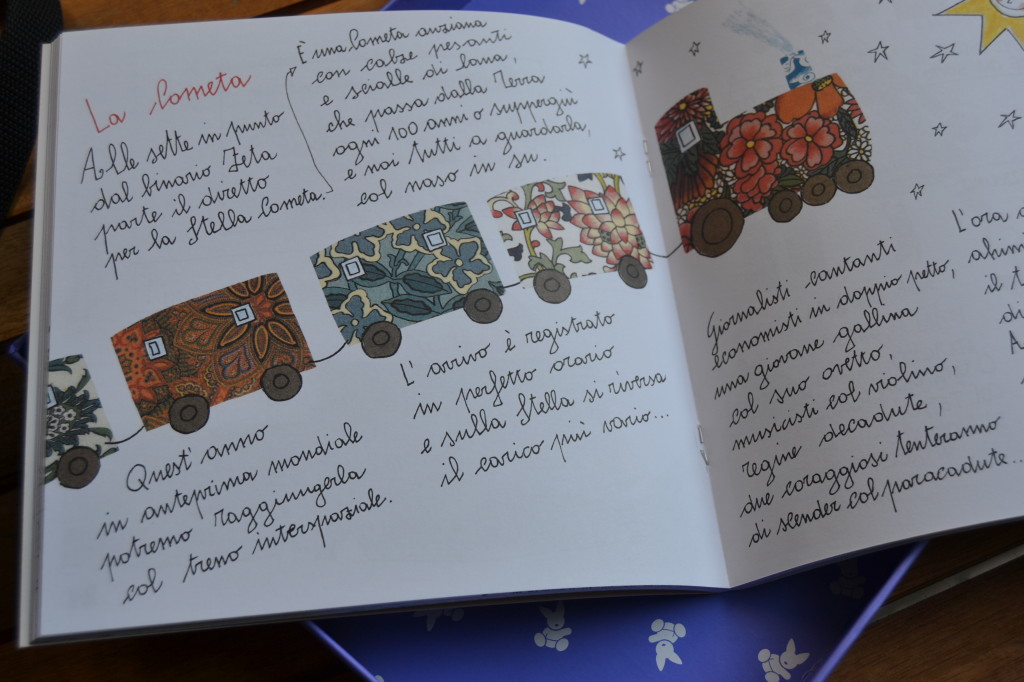 La Cometa
Alle sette in punto
dal binario Zeta
parte il diretto
per la Stella Cometa.
È una Cometa anziana
con calze pesanti
e scialle di lana,
che passa dalla Terra
ogni 100 anni o suppergiù
e noi tutti a guardarla,
col naso in su.
Quest'anno
in anteprima mondiale
potremo raggiungerla
col treno interspaziale.
L'arrivo è registrato
in perfetto orario
e sulla Stella si riversa
il carico più vario...
Giornalisti cantanti
economisti in doppio petto,
una giovane gallina
col suo ovetto,
musicisti col violino,
regine decadute,
due coraggiosi tenteranno
di scender col paracadute...
L'ora
ahim
il t
di
A